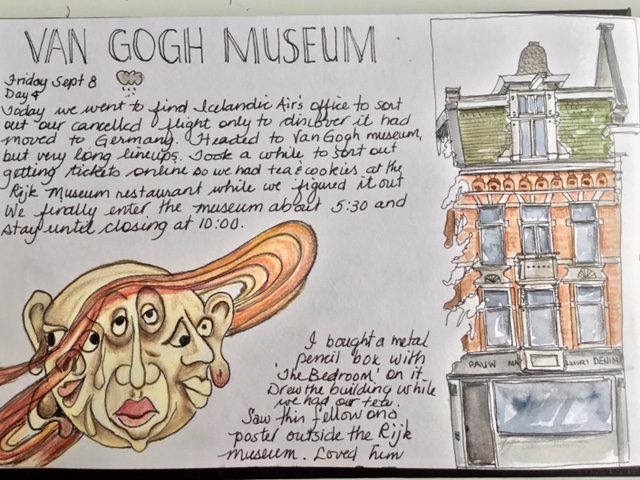 VAN GOGH MUSEUM
Friday Sept 8
Day 4
Today we went to find Icelandic Air's office to sort
out our cancelled flight only to discover it had
moved to Germany. Headed to Van Gogh museum,
but very long lineups. Took a while to sort out
getting tickets online so we had tea & cookies at the
Rijk Museum restaurant while we figured it out
We finally enter the museum about 5:30 and
stay until closing at 10:00.
I bought a metal
pencil box with
'The Bedroom' on it
Drew the building while
we had our tea.
Saw this fellow on a
poster outside the Rijk
museum. Loved him
PAUW MA
DENIM